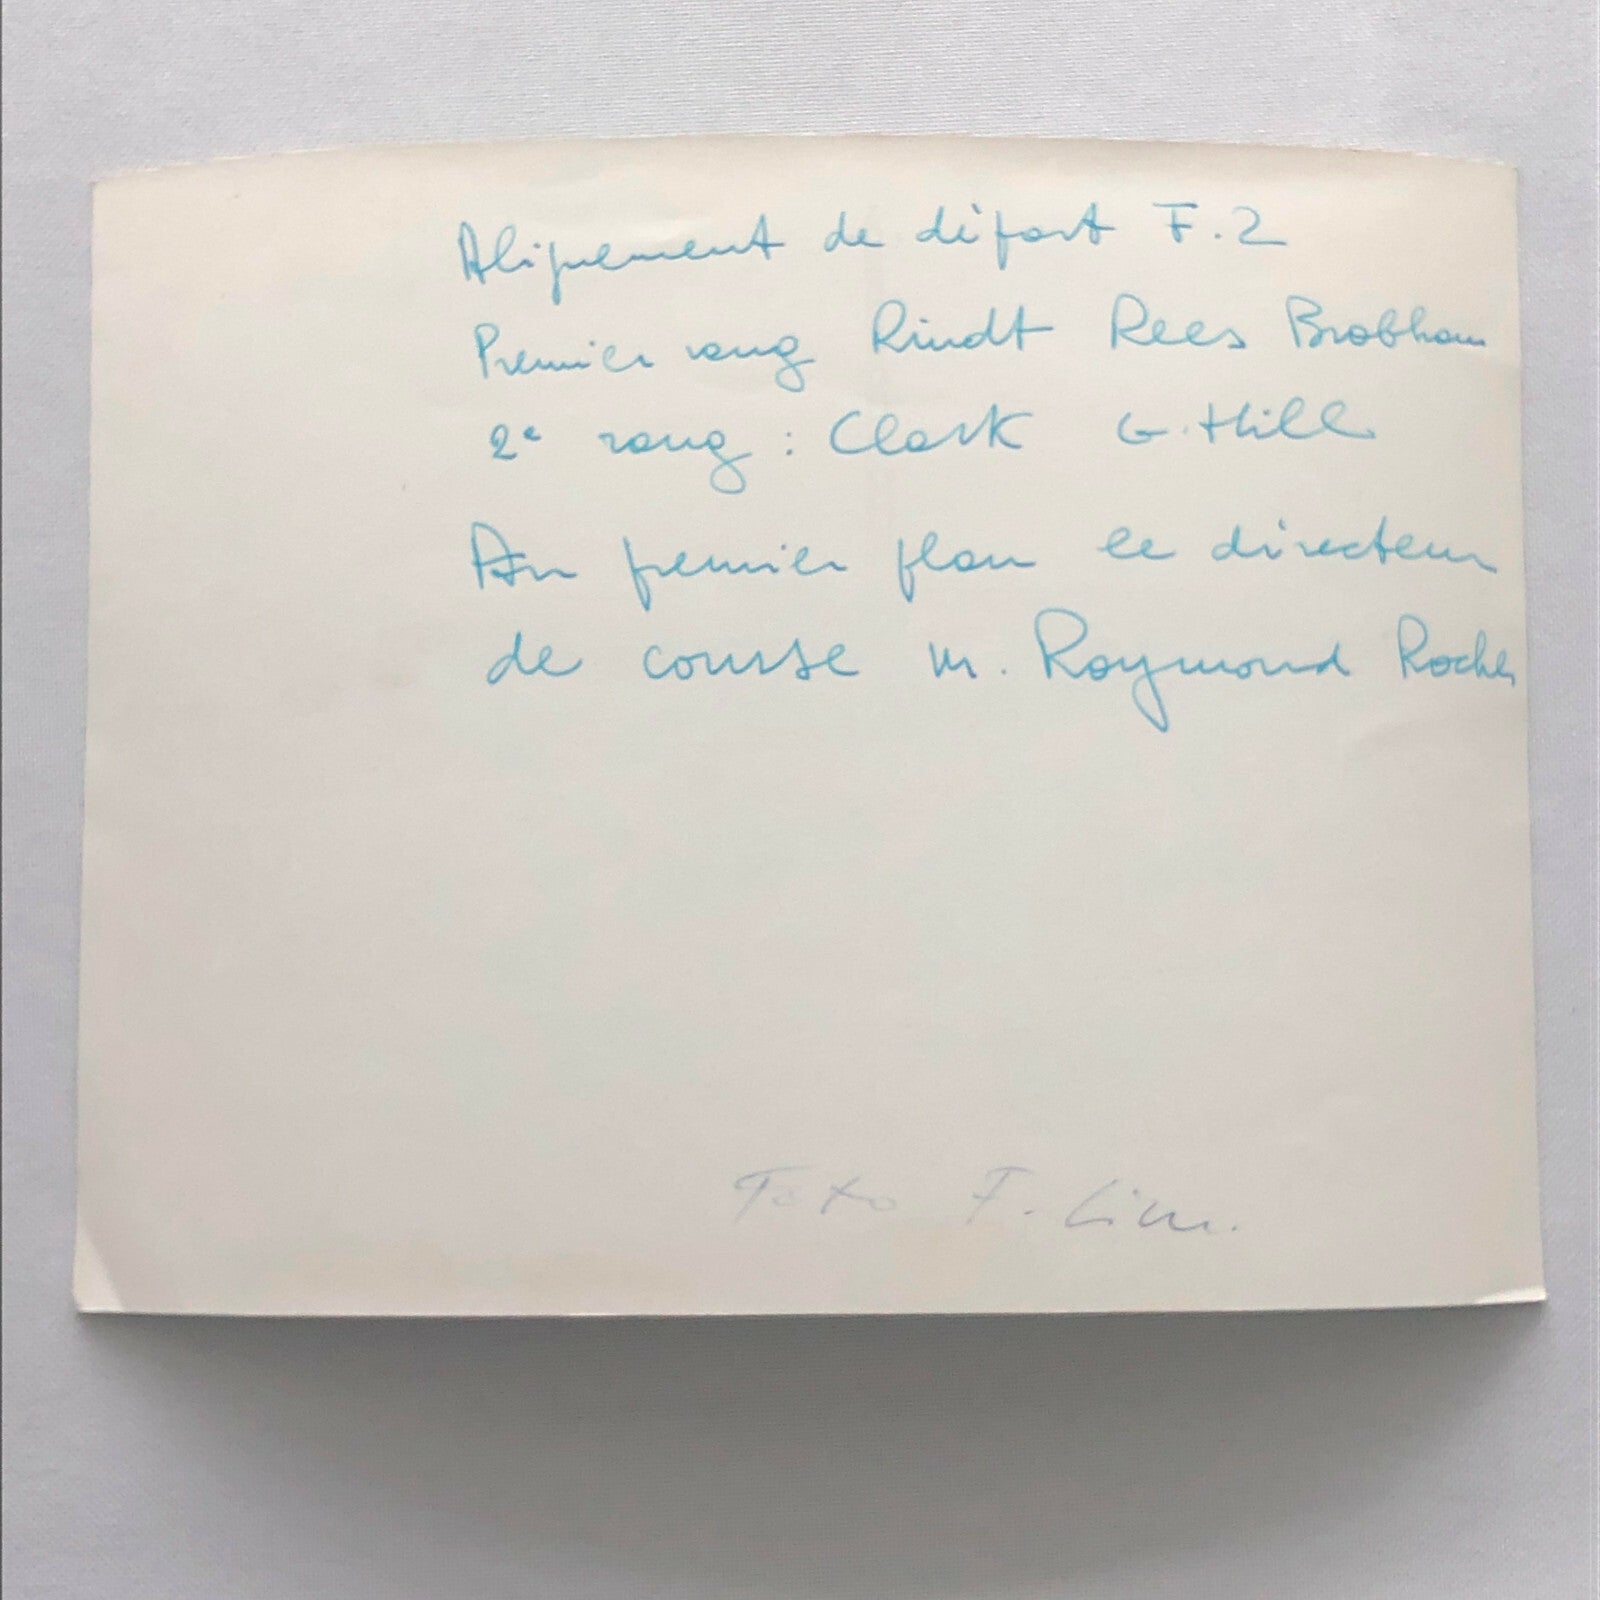 Alignement de départ F.2
Premier rang Rindt Rees Brabham
2e rang : Clark G. Hill
Au premier plan le directeur
de course M. Raymond Roche
Foto F.